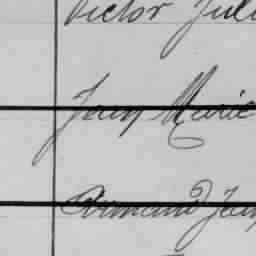 Victor Jul
Jean Marie
Armand Jean